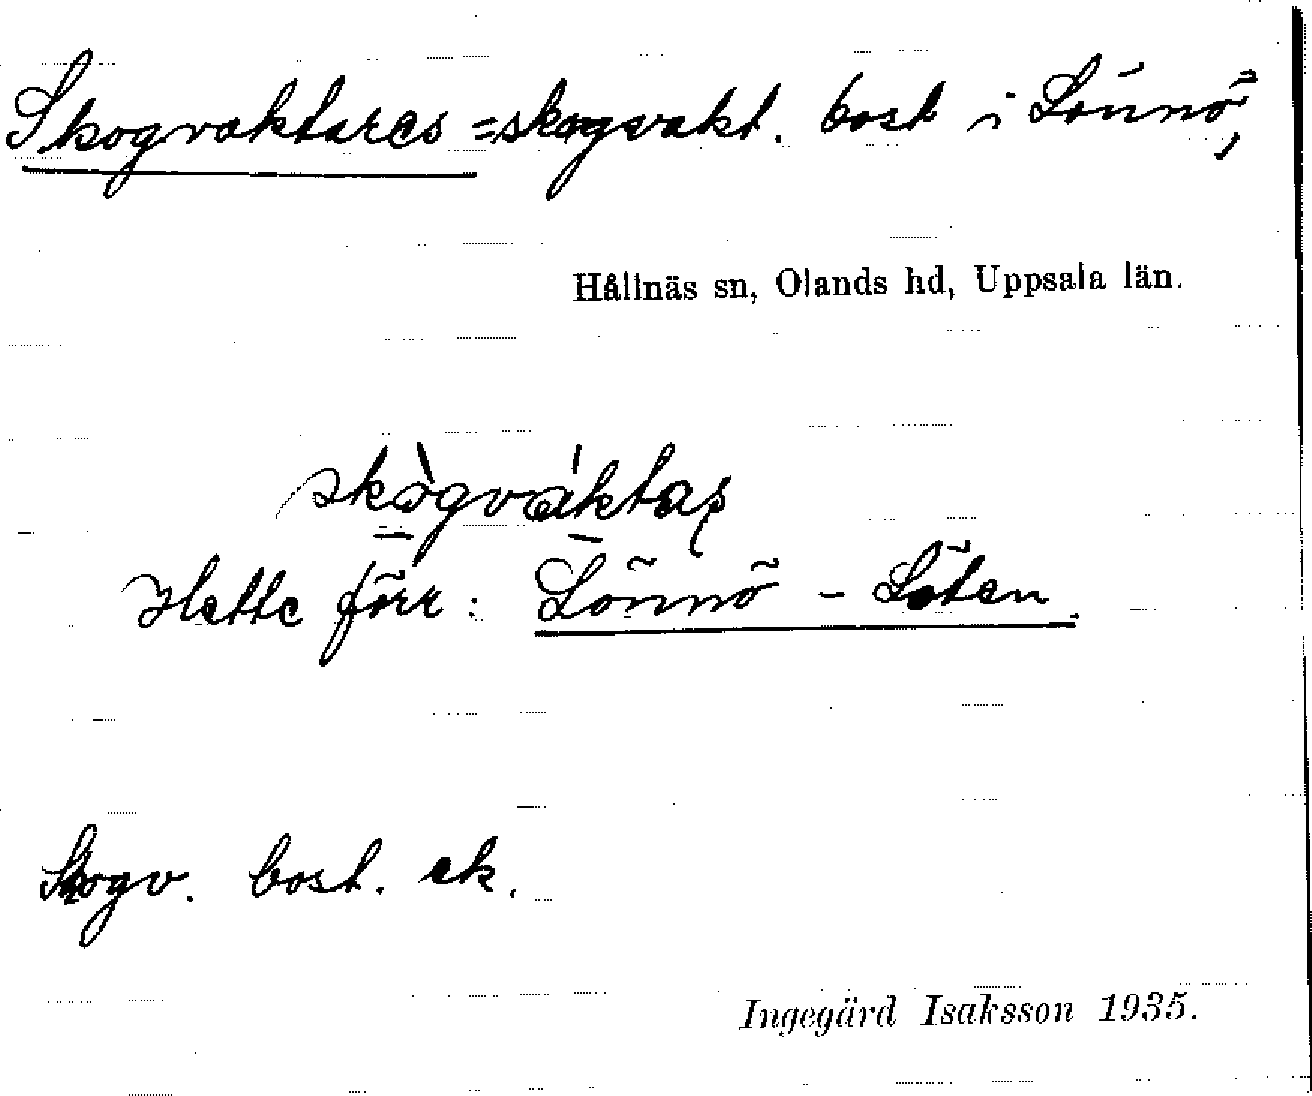 Skogvaktares = skogvakt. bost. i Lönnö,
Hållnäs sn, Olands hd, Uppsala län.
skògváktaș
Hette förr: Lönnö - Löten.
Skogv. bost. ek.
Ingegärd Isaksson 1935.